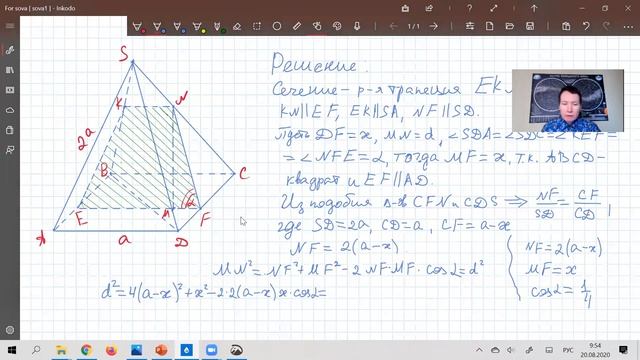 For sova | sova1 | - Inkodo
1/1
Решение.
Сечение - р-я трапеция EK
KN||EF, EK||SA, NF||SD.
Пусть DF=x, MN=d, ∠SDA=∠SDC=∠KEF=
=∠NFE=α, тогда MF=x, т.к. ABCD-
квадрат и EF||AD.
Из подобия Δ-в CFN и CDS ⇒ NF/SD = CF/CD,
где SD=2a, CD=a, CF=a-x
NF=2(a-x)
MN²=NF²+MF²-2NF·MF·cosα=d²
d²=4(a-x)²+x²-2·2(a-x)x·cosα=
NF=2(a-x)
MF=x
cosα=1/4
S
K
N
2a
B
C
E
M
α
F
A
a
D
РУС
9:54
20.08.2020